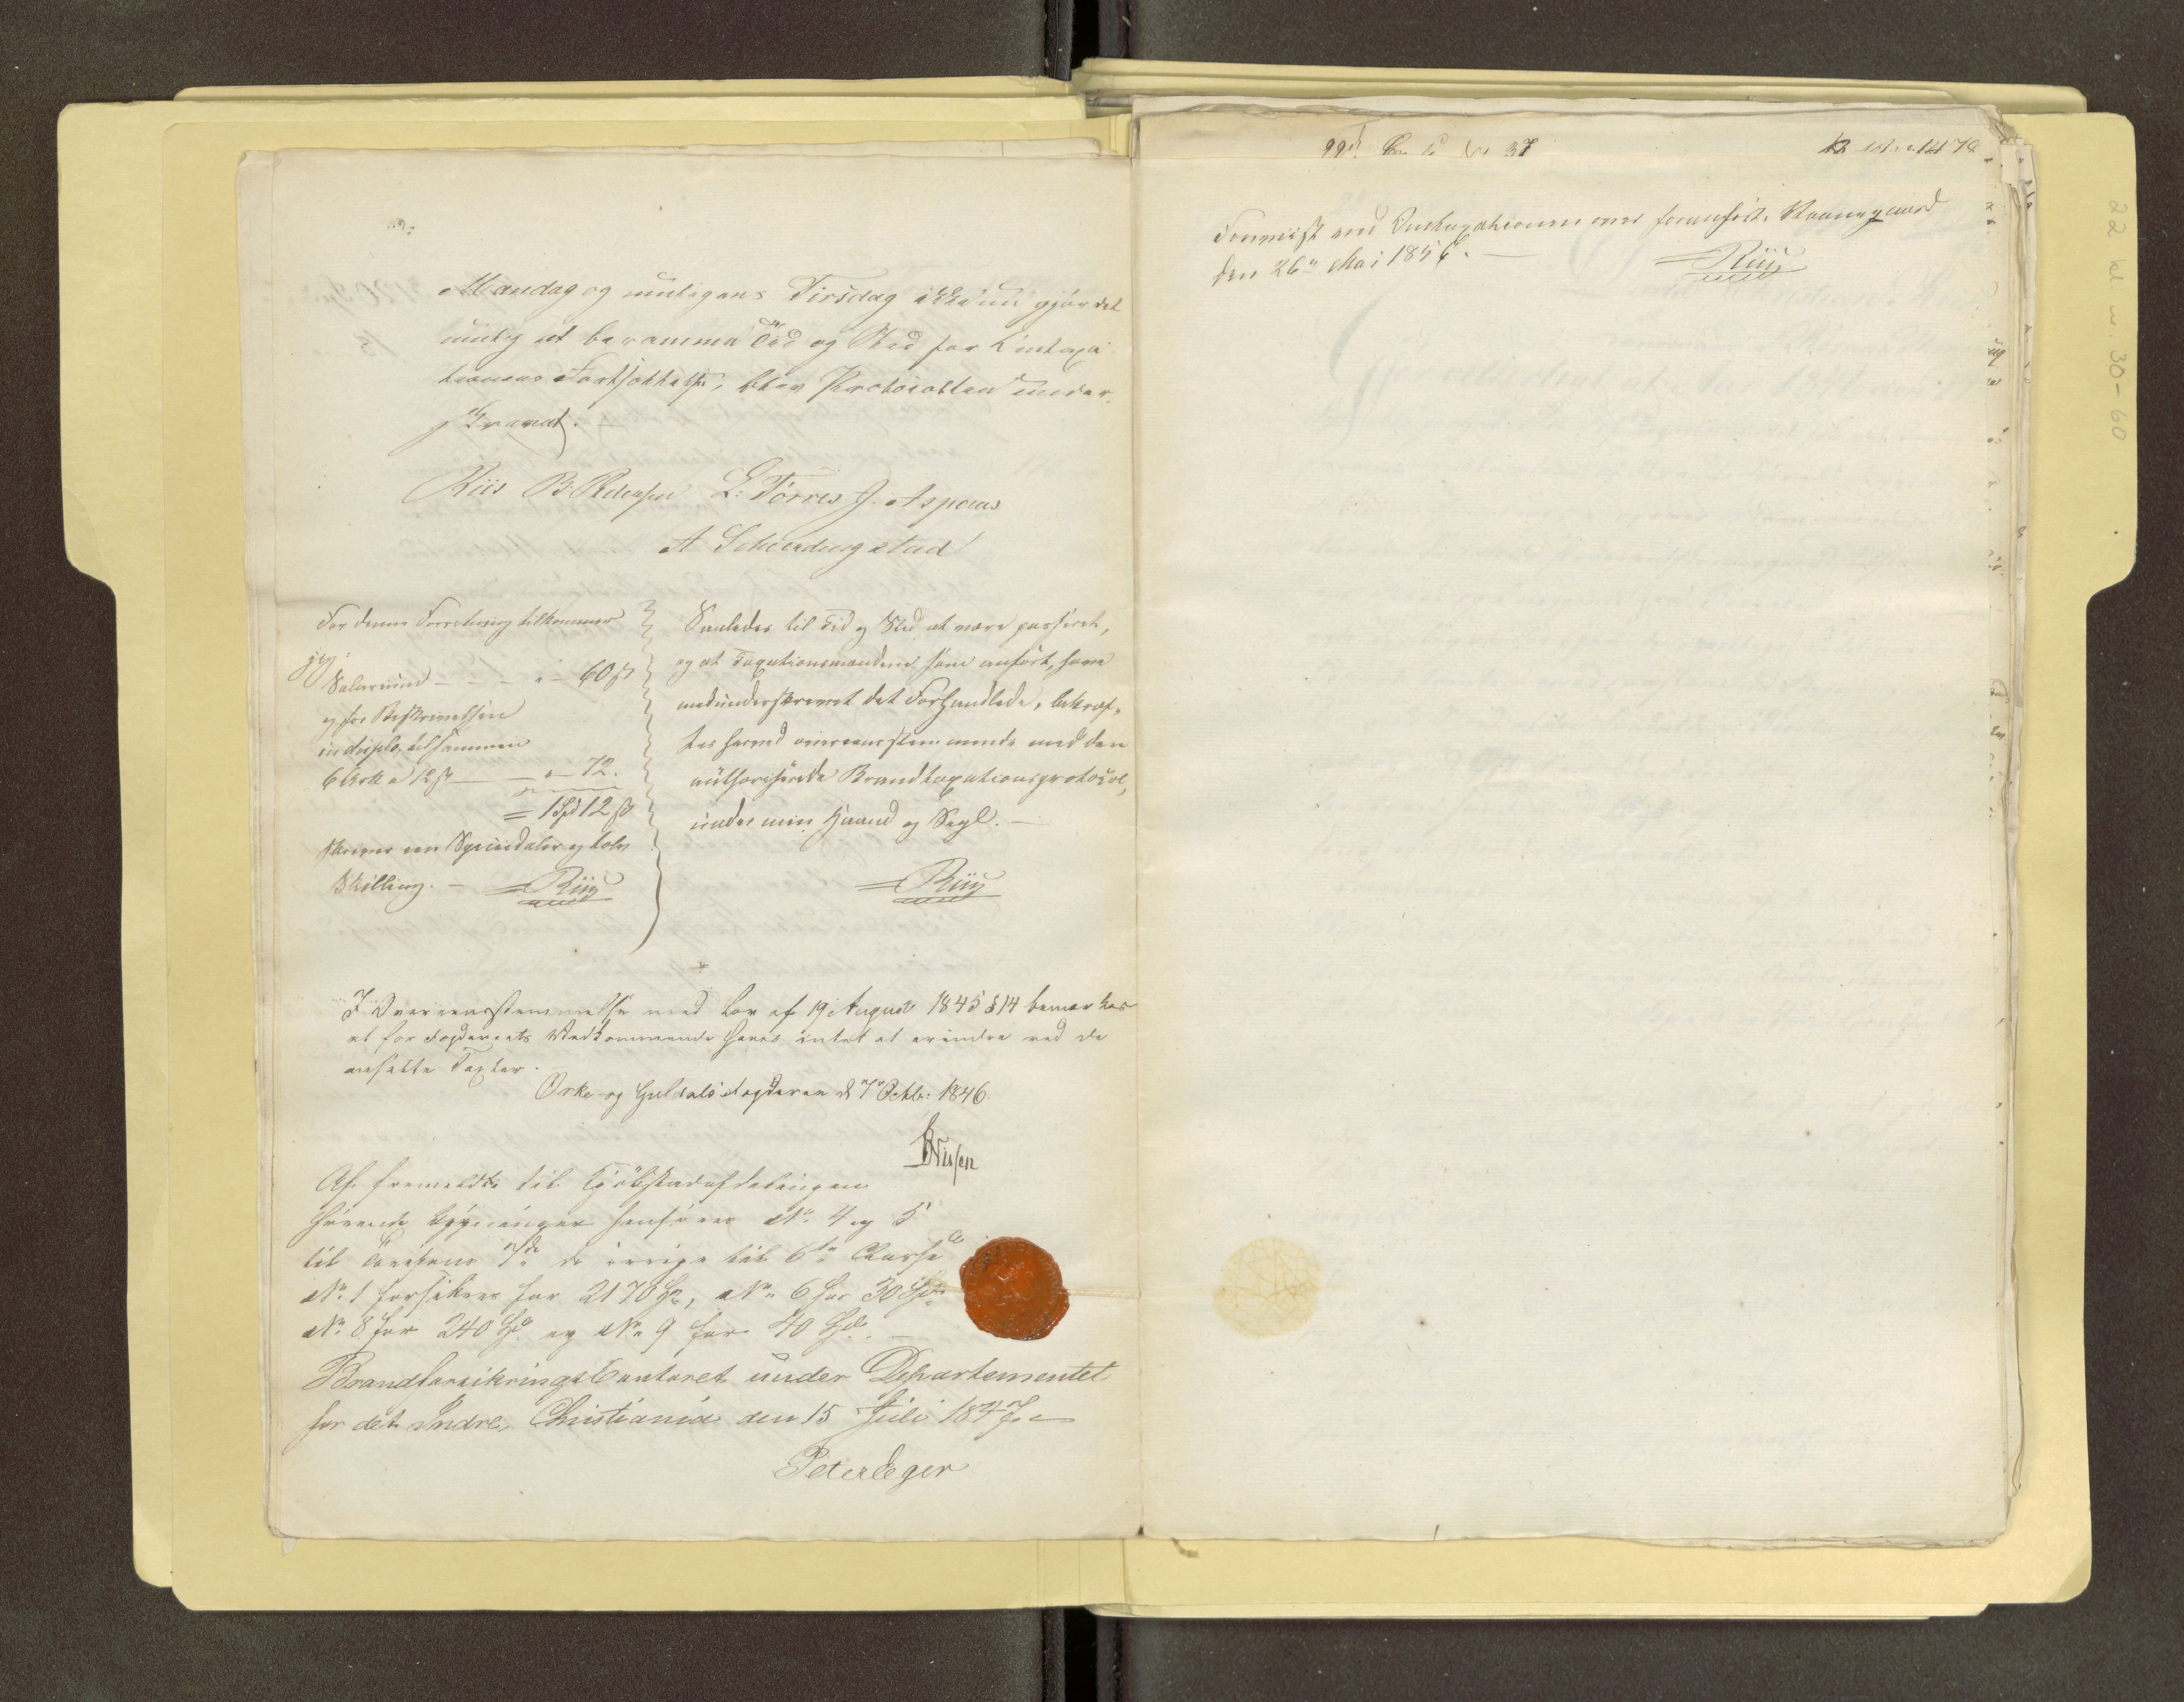 Mandag og muligens Tirsdag ikke nu gjør det
mulig at beramme Tid og Sted for Omtaxa
tionens Fortsættelse, blev Protocollen under
skrevet.
Riis B: Pedersen L: Torres J. Aspaas
A Schierdingstad
For denne Forretning tilkommer
jeg:
Salarium - - - " - 60 ß
og for Beskrivelsen
in duplo, tilsammen
6 Ark a 12 ß — - " - 72.
= 1 Spd 12 ß
skriver een Speciedaler og tolv
Skilling. — Riis
Saaledes til Tid og Sted at være passeret,
og at Taxationsmændene som anført, have
medunderskrevet det Forhandlede, bekræf-
tes herved overeensstemmende med den
authoriserede Brandtaxationsprotocol,
under min Haand og Segl. —
Riis
I Overeensstemmelse med Lov af 19 August 1845 § 14 bemærkes
at for Fogderiets Vedkommende haves intet at erindre ved de
ansatte Taxter.
Orke- og Guldals Fogderie d 7 Octbr: 1846.
Nissen
Af fremeldte til Kjøbstadafdelingen
hørende Bygninger henføres No 4 og 5
til 7de de øvrige til 6te Classe
No 1 forsikres for 2170 Spd, No 6 for 30 Spd
No 8 for 240 Spd og No 9 for 40 Spd. —
Brandforsikrings Contoret under Departementet
for det Indre, Christiania den 15 Juli 1847.
Peter Eeger
37
Foreviist ved Omtaxationen over foranførte Gaard
den 26de Mai 1856. — Riis
22 kl nr. 30-60